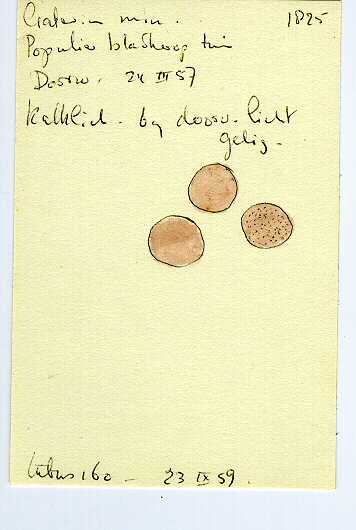 Crater. min. 1825
Populier bladhoop tuin
Doorw. 24 III 57
Kalklich. by doorv. licht
gelig.
160 – 23 IX 59.